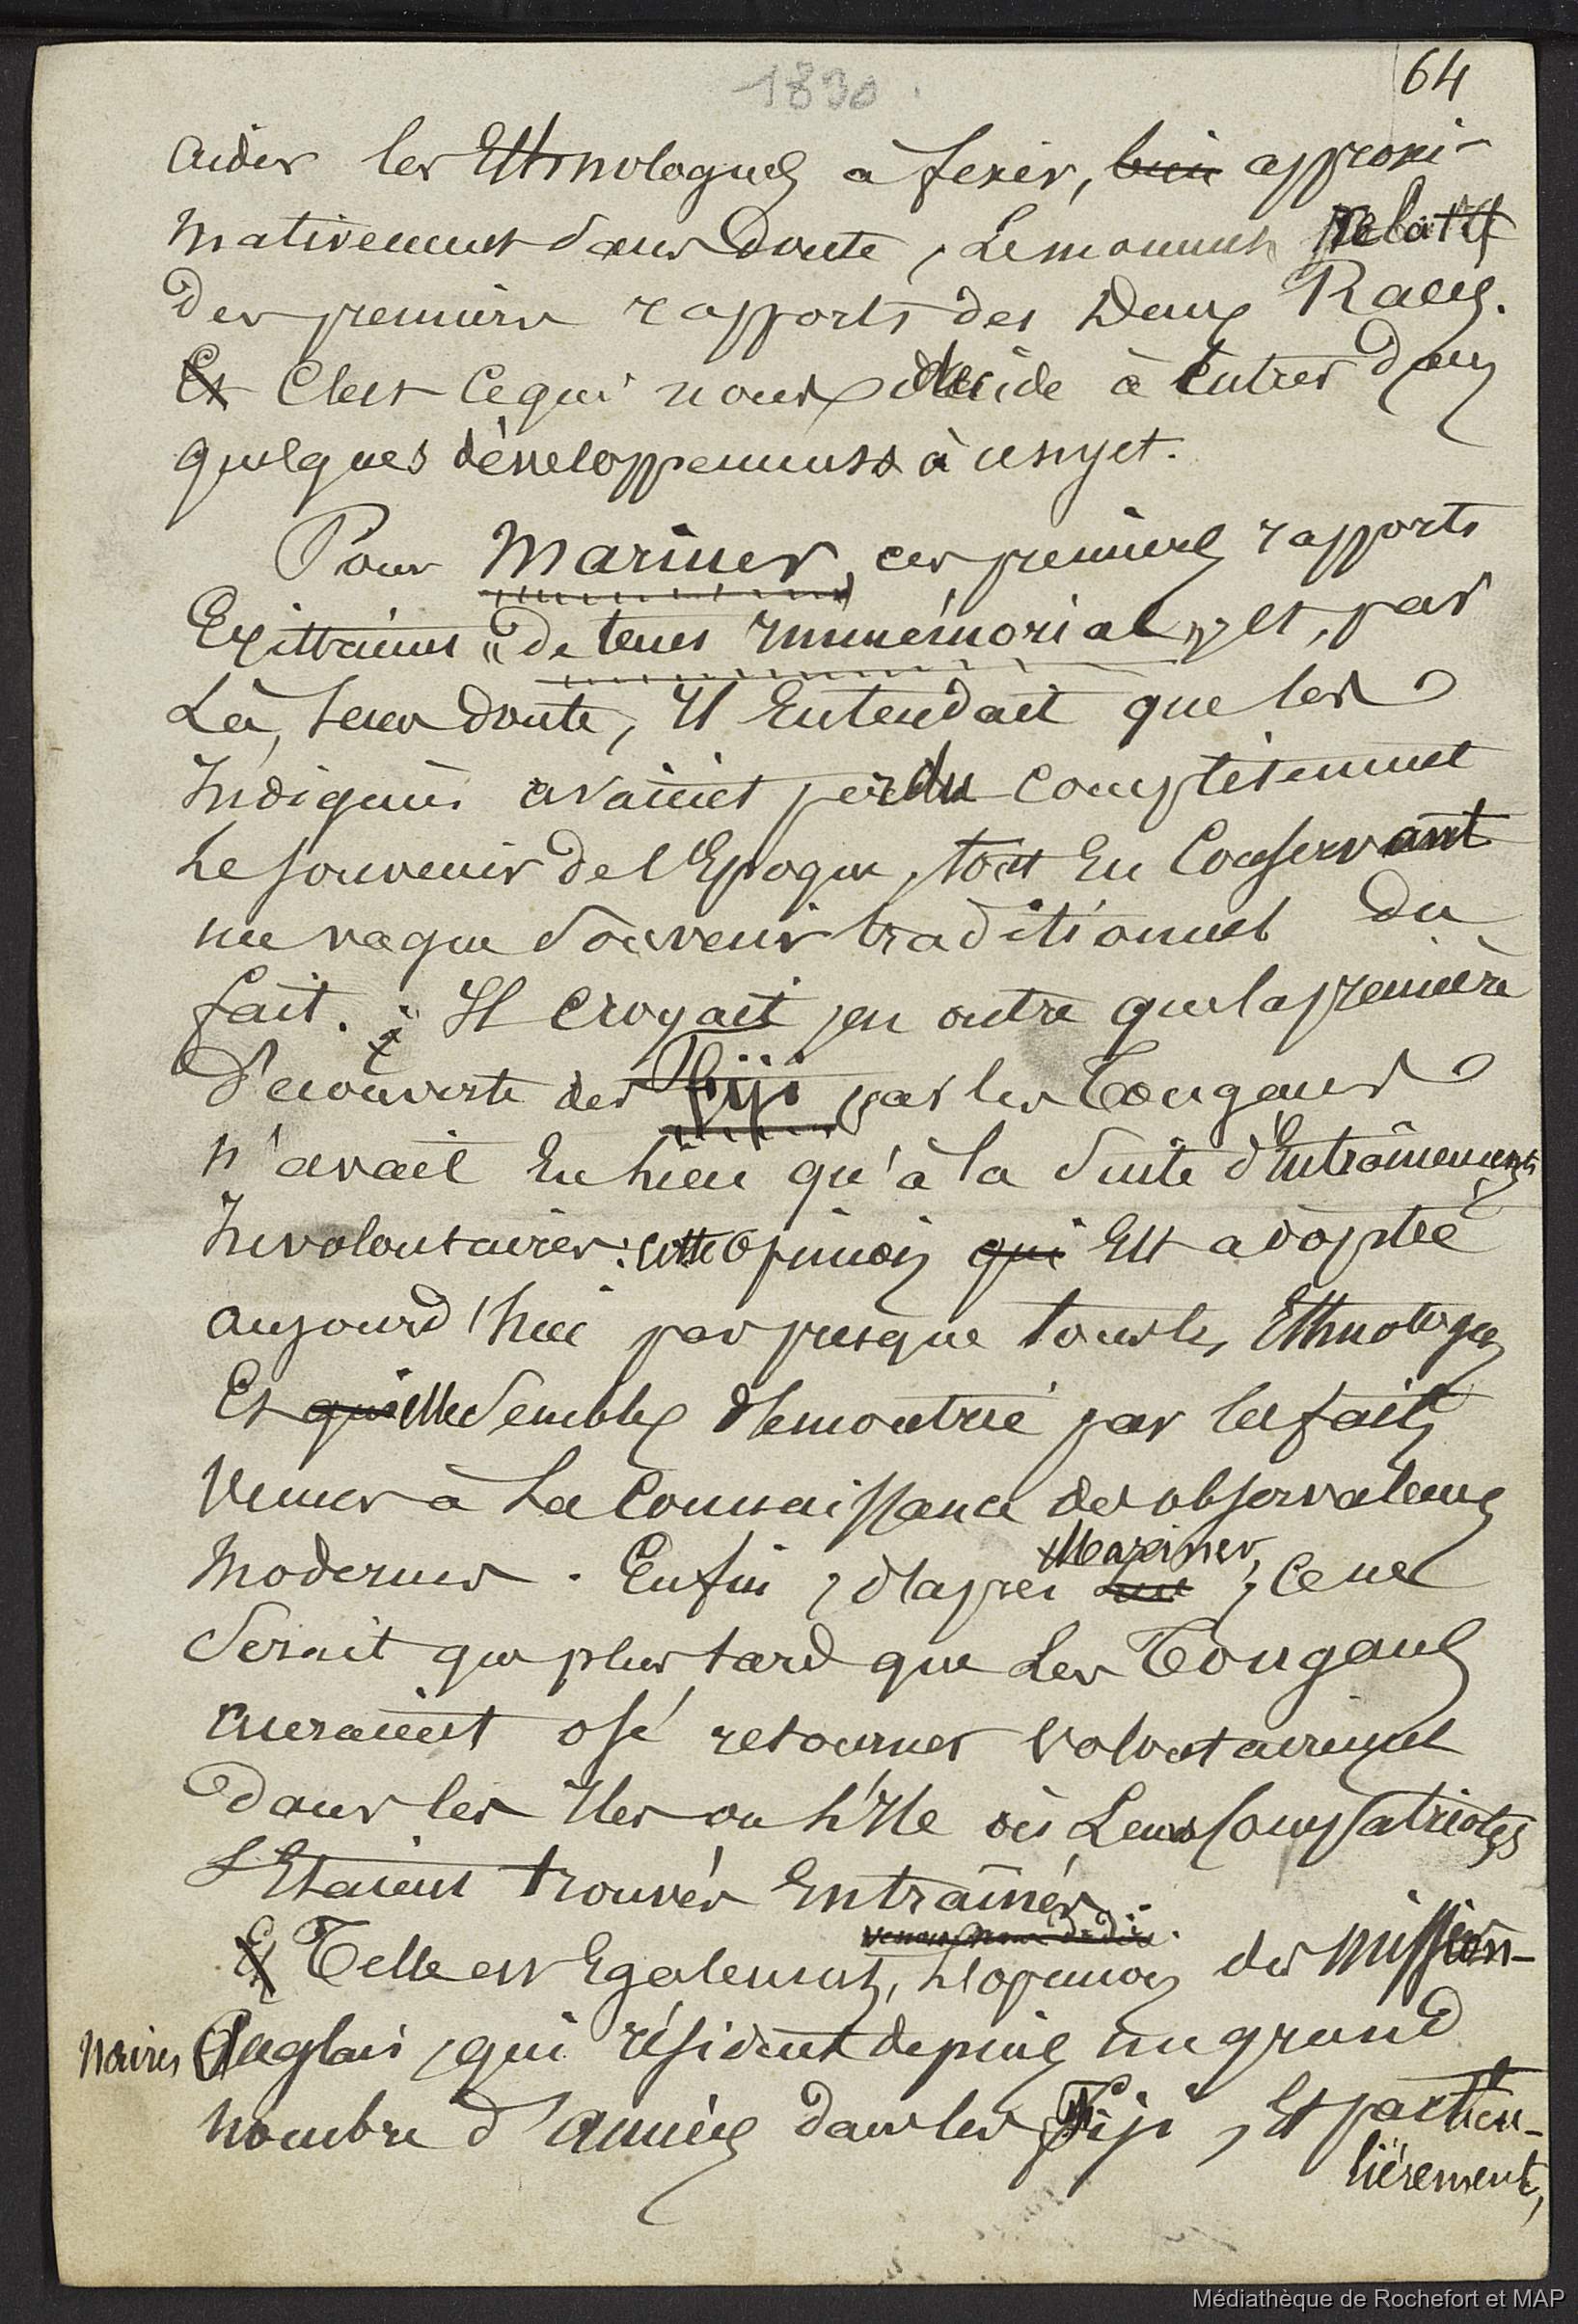 64
1830.
aider les Ethnologues à fixer, bien approxi-
mativement sans doute, le moment relatif
des premiers rapports des deux Races.
Et C'est ce qui nous décide à entrer dans
quelques développements à ce sujet.
Pour Mariner, ces premiers rapports
Existaient "de tems immémorial", et, par
Là, sans doute, il Entendait que les
Indigènes avaient perdu complètement
le souvenir de l'Epoque, tout En Conservant
un vague souvenir traditionnel du
fait. Il croyait en outre que la première
découverte des Fiji par les Tongans
n'avait eu lieu qu'à la suite d'Entraînements
Involontaires: cette opinion qui Est adoptée
aujourd'hui par presque tous les Ethnologues
Et qui elle semble démontrée par les faits
venus à la connaissance des observateurs
Modernes. Enfin, d'après lui Mariner, ce ne
serait que plus tard que les Tongans
auraient osé retourner volontairement
dans les Iles ou l'Ile où Leurs Compatriotes
s'Etaient trouvés Entraînés.
Et Telle est Egalement, l'opinion des Mission-
naires Anglais, qui résident depuis un grand
nombre d'années dans les Fiji, Et particu-
lièrement,
Médiathèque de Rochefort et MAP